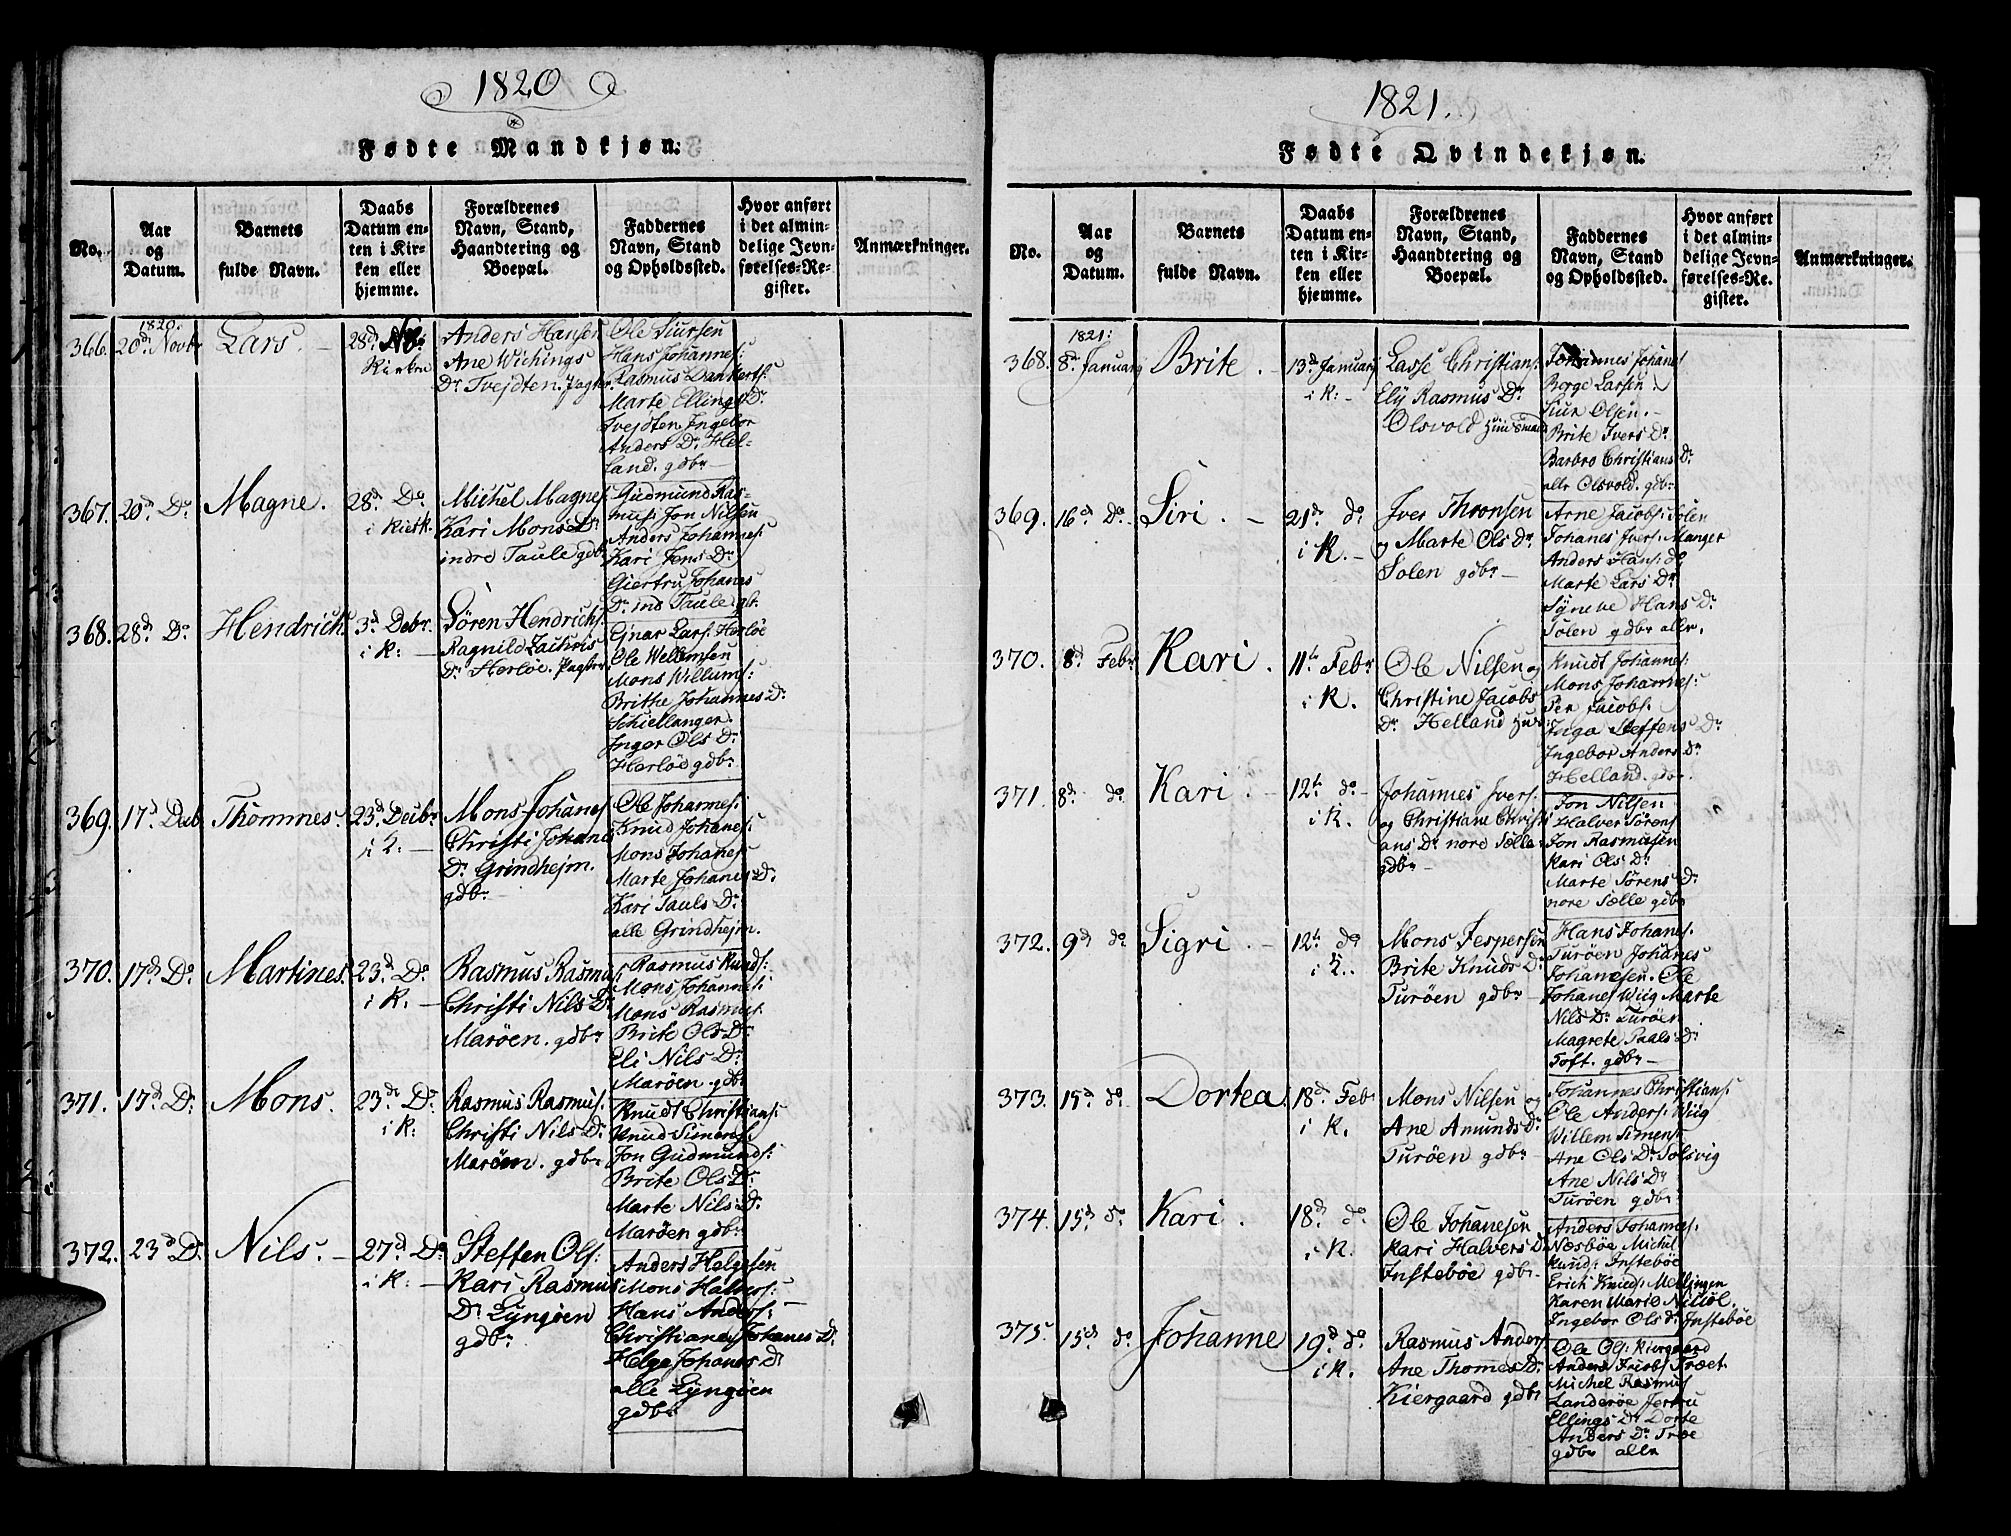 1820
Fødte Mandkjøn.
No.
Aar
og
Datum.
Barnets
fulde Navn.
Daabs
Datum en-
ten i Kir-
ken eller
hjemme.
Forældrenes
Navn, Stand,
Haandtering og
Boepæl.
Faddernes
Navn, Stand
og Opholdssted.
Hvor anført
i det almin-
delige Jevn-
førelses-Re-
gister.
Anmærkninger.
366.
1820.
20d Novbr
Lars.
28d Nbr
Kirken
Anders Hansen
Ane Wichings
Dr Tvejdten. Pagter
Ole Siursen
Hans Johannes:
Rasmus Dankerts:
Marte Ellings Dr
Tvejdten, Ingebor
Anders Dr Hel-
land. gdbr
367.
20d Do
Magne.
28d Do
i Kirk.
Michel Magnes.
Kari Mons Dr
indre Taule gdbr
Gudmund Ras-
mus: Jon Nilsen
Anders Johannes:
Kari Jens Dr
Giertru Johanes
Dr ind Taule gb.
368.
28d Do
Hendrich
3d Debr.
i K:
Søren Hendrichs:
Ragnild Zachris
Dr Herløe. Pagter
Ejnar Lars: Herløe
Ole Wellemsen
Mons Willums:
Brithe Johannes Dr
Schiellanger.
Inger Ols Dr
Herløe gdbr
369.
17d Deb
Thommes.
23d Debr
i K.
Mons Johanes
Christi Johanes
Dr Grindhejm.
gdbr
Ole Johannes:
Knud Johanes:
Mons Johanes:
Marte Johanes Dr
Kari Pauls Dr
alle Grindhejm.
370.
17d Do
Martines.
23d Do
i K.
Rasmus Rasmus
Christi Nils Dr
Marøen. gdbr
Rasmus Knuds:
Mons Johannes:
Mons Rasmus:
Brite Ols Dr
Eli Nils Dr
Marøen. gdbr
371.
17d Do
Mons.
23d Do
i K:
Rasmus Rasmus:
Christi Nils Dr
Marøen. gdbr
Knudt Christians:
Knud Simens:
Jon Gudmunds:
Brite Ols Dr
Marte Nils Dr
Marøen gdbr
372.
23d Do
Nils.
27d Do
i K:
Steffen Ols:
Kari Rasmus
Dr Lyngøen
gdbr
Anders Helgesen
Mons Halvers:
Hans Anders:
Christiane Johanes Dr
Helga Johanes Dr
alle Lyngøen
gdbr
1821.
Fødte Qvindekjøn.
No.
Aar
og
Datum.
Barnets
fulde Navn.
Daabs
Datum en-
ten i Kir-
ken eller
hjemme.
Forældrenes
Navn, Stand,
Haandtering og
Boepæl.
Faddernes
Navn, Stand
og Opholdssted.
Hvor anført
i det almin-
delige Jevn-
førelses-Re-
gister.
Anmærkninger.
368.
1821:
8d Januarj
Brite.
13d Januarj
i K:
Lasse Christians:
Elij Rasmus Dr
Olsvold
Johannes Johanes
Børge Larsen.
Siur Olsen.
Brite Ivers Dr
Barbro Christians Dr
alle Olsvold. gdbr
369.
16d Do
Siri.
21d do
i K.
Iver Thronsen
og Marte Ols Dr
Solen gdbr
Arne Jacobs: Solen
Johanes Ivers: Manger
Anders Hans: do
Marte Lars Dr
Syneve Hans Dr
Solen gdbr alle.
370.
8d Febr
Kari.
11te Febr
i K.
Ole Nilsen og
Christine Jacobs
Dr Helland
Knudt Johannes:
Mons Johannes:
Per Jacobs:
Inga Steffens Dr
Ingebor Anders Dr
Helland. gdbr.
371.
8d do
Kari.
12te do
i K.
Johannes Ivers:
og Christiane Christi
ans Dr nore Sælle
gdbr
Jon Nilsen
Halver Sørens
Jon Rasmusen
Kari Ols Dr
Marte Sørens Dr
nore Sælle gdbr
372.
9d do
Sigri.
12te do
i K.
Mons Jespersen
Brite Knuds Dr
Turøen gdbr
Hans Johanes.
Turøen Johanes
Johanesen. Ole
Johanes Wiig Marte
Nils Dr Turøen
Magrete Paals Dr
Toft. gdbr
373.
15d do
Dortea.
18d Feb
i K.
Mons Nilsen og
Ane Amunds Dr
Turøen gdbr
Johannes Christians:
Ole Anders: Wiig
Willem Simens:
Ane Ols Dr Solsvig
Ane Nils Dr
Turøen gdbr
374.
15d do
Kari.
18d do
i K.
Ole Johanesen
Kari Halvers Dr
Instebøe gdbr
Anders Johannes:
Næsbøe Michel
Knuds: Instebøe
Erich Knuds: Mellingen
Karen Marie
Ingebor Ols Dr Instebøe
375.
15d do
Johanne
19d do
i K.
Rasmus Anders
Ane Thomes Dr
Kiergaard gdbr
Ole Ols: Kiergaard
Anders Jacobs Træet
Michel Rasmus
Landerøe Jertru
Ellings Dr Dorte
Anders Dr Træe
gdbr alle